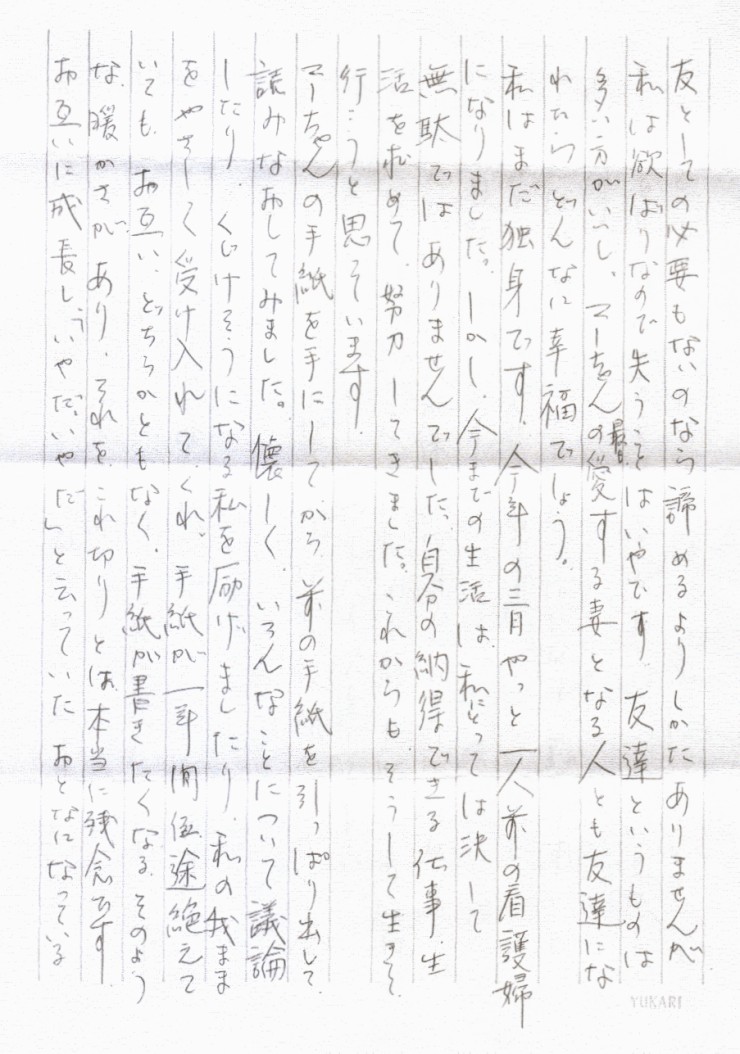 友としての必要もないのなら諦めるよりしかたありませんが
私は欲ばりなので失うことはいやです。友達というものは
多い方がいいし、マーちゃんの最愛する妻となる人とも友達にな
れたらどんなに幸福でしょう。
私はまだ独身です。今年の三月やっと一人前の看護婦
になりました。しかし、今までの生活は、私にとっては決して
無駄ではありませんでした。自分の納得できる仕事、生
活を求めて、努力してきました。これからもそうして生きて
行こうと思っています。
マーちゃんの手紙を手にしてから前の手紙を引っぱり出して、
読みなおしてみました。懐しく、いろんなことについて議論
したり、くじけそうになる私を励げましたり、私の我まま
をやさしく受け入れてくれ。手紙が一年間位途絶えて
いても、お互い、どちらかともなく、手紙が書きたくなる。そのよう
な、暖かさがあり、それを、これ切りとは、本当に残念です。
お互いに成長し、「いやだ、いやだ」と云っていたおとなになっている
YUKARI